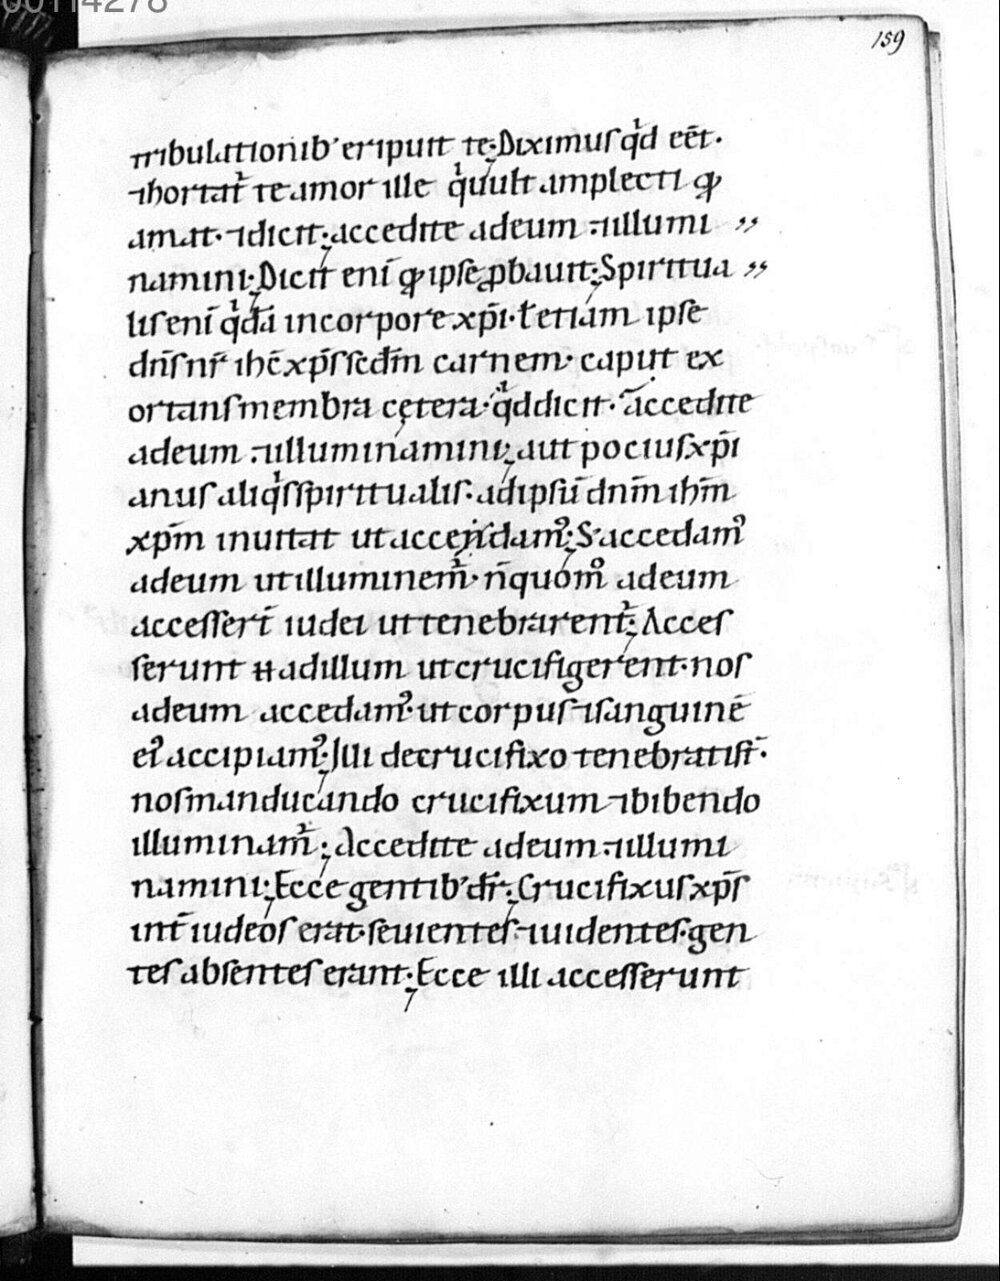 00114278
159
tribulationib' eripuit te; Diximus qͥd eēt·
⁊hortat᷑ te amor ille qͥ uult amplecti qđ
amat· ⁊dicit; accedite adeum ⁊illumi
namini; Dicit enī qđ ipse ꝓbauit; Spiritua
lis enī qͥdā incorpore xp̄i· ł etiam ipse
dn̄s nr̄ ihc̄ xp̄s scđm carnem· caput ex
ortans membra cętera· qͥd dicit· accedite
adeum ⁊illuminamini; aut pocius xp̄i
anus aliqͥs spiritualis· adipsū dnm̄ ihm̄
xpm̄ inuitat ut accedam᷒; S; accedam᷒
adeum ut illuminem᷑· n̄ quom᷒ adeum
accesser̄t iudei ut tenebrarent᷑; Acces
serunt H adillum ut crucifigerent· nos
adeum accedam᷒· ut corpus ⁊sanguinē
ei᷒ accipiam᷒; Illi decrucifixo tenebrati st̄·
nos manducando crucifixum ⁊bibendo
illuminam᷑; Accedite adeum ⁊illumi
namini; Ecce gentib' dr̄; Crucifixus xp̄s
int̄ iudeos erat· seuientes ⁊uidentes· gen
tes absentes erant; Ecce illi accesserunt